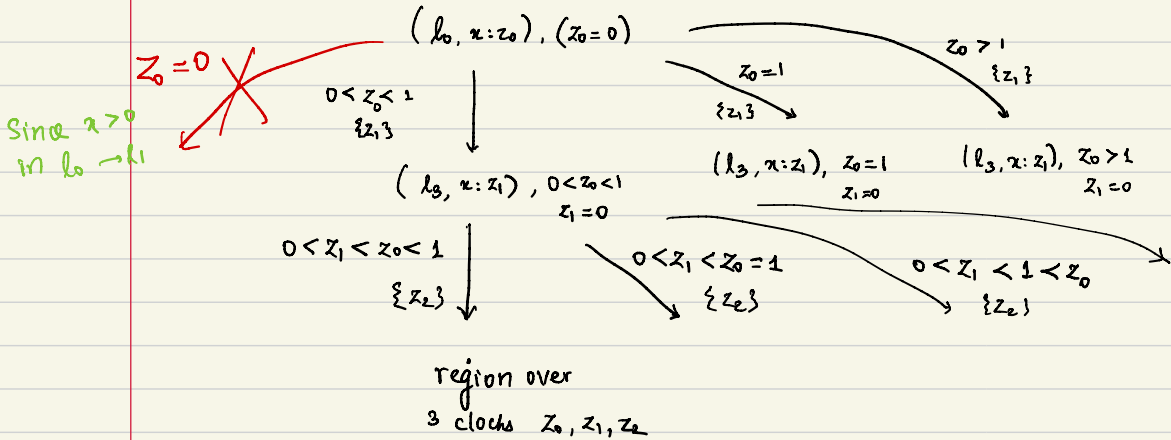 (l₀, x:z₀), (z₀=0)
z₀=0
z₀>1
{z₁}
z₀=1
{z₁}
0<z₀<1
{z₁}
Since x>0
in l₀→l₁
(l₃, x:z₁), 0<z₀<1
z₁=0
(l₃, x:z₁), z₀=1
z₁=0
(l₃, x:z₁), z₀>1
z₁=0
0<z₁<z₀<1
{z₂}
0<z₁<z₀=1
{z₂}
0<z₁<1<z₀
{z₂}
region over
3 clocks z₀, z₁, z₂